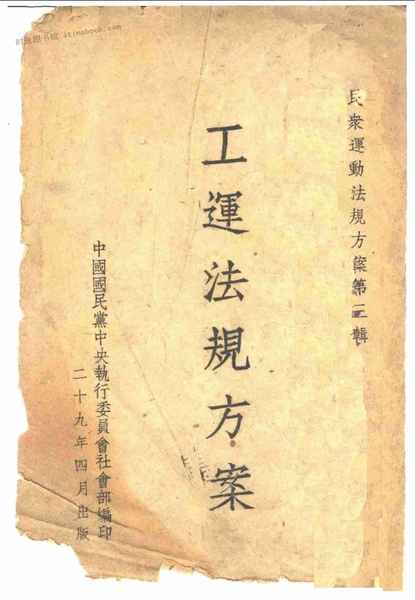 民衆運動法規方案第二輯
工運法規方案
中國國民黨中央執行委員會社會部編印
二十九年四月出版